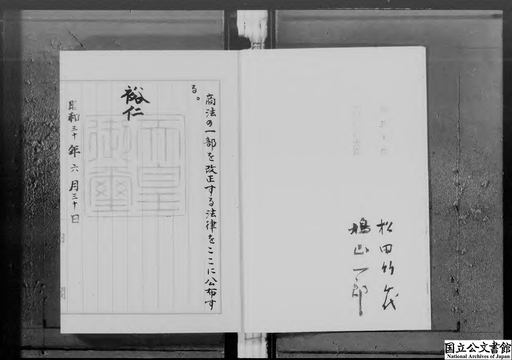 商法の一部を改正する法律をここに公布す
る。
裕仁
天皇
御璽
昭和三十年六月三十日
鳩山一郎
国立公文書館
National Archives of Japan